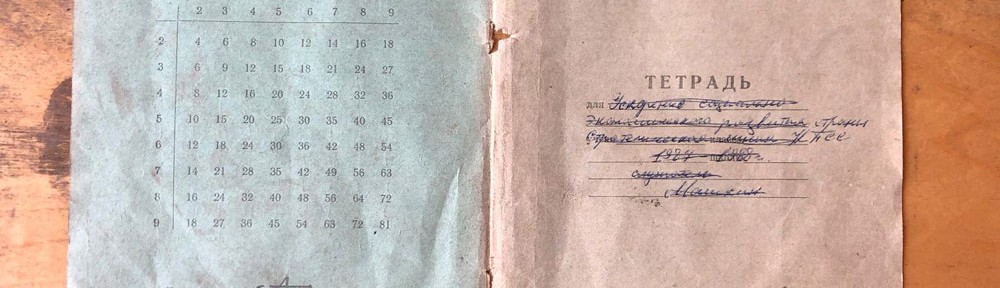 2 3 4 5 6 7 8 9
2 4 6 8 10 12 14 16 18
3 6 9 12 15 18 21 24 27
4 8 12 16 20 24 28 32 36
5 10 15 20 25 30 35 40 45
6 12 18 24 30 36 42 48 54
7 14 21 28 35 42 49 56 63
8 16 24 32 40 48 56 64 72
9 18 27 36 45 54 63 72 81
ТЕТРАДЬ
для социально
Экономического развития страны
КПСС
1987
слушатель
Машкин